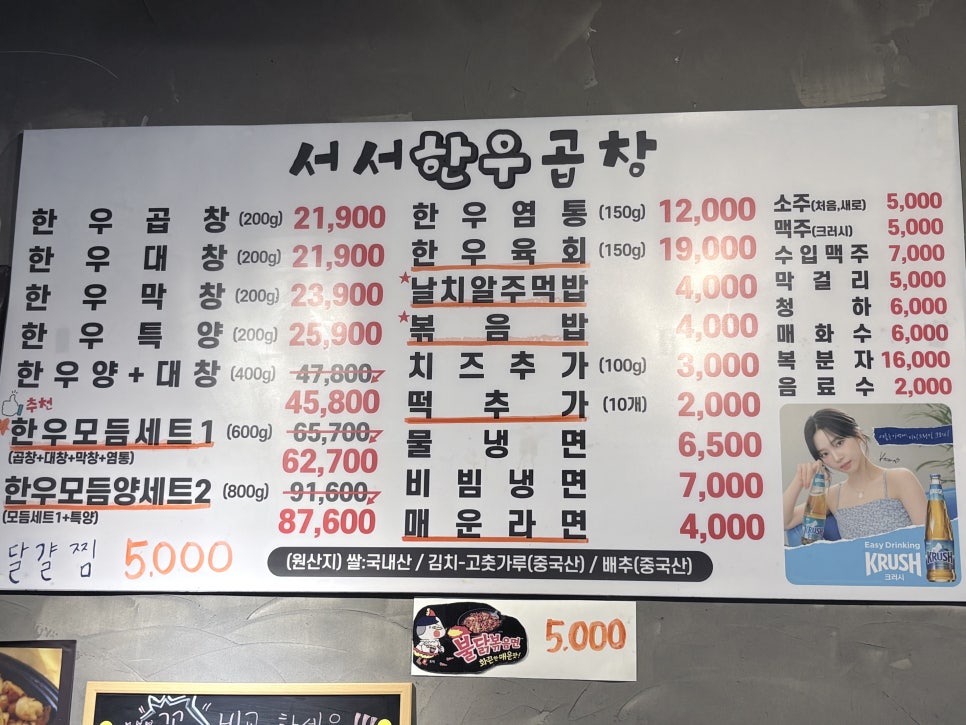 서서한우곱창
한우곱창 (200g) 21,900
한우대창 (200g) 21,900
한우막창 (200g) 23,900
한우특양 (200g) 25,900
한우양+대창 (400g) 47,800
45,800
추천
한우모듬세트1 (600g) 65,700
(곱창+대창+막창+염통) 62,700
한우모듬양세트2 (800g) 91,600
(모듬세트1+특양) 87,600
달걀찜 5,000
한우염통 (150g) 12,000
한우육회 (150g) 19,000
날치알주먹밥 4,000
볶음밥 4,000
치즈추가 (100g) 3,000
떡추가 (10개) 2,000
물냉면 6,500
비빔냉면 7,000
매운라면 4,000
소주(처음,새로) 5,000
맥주(크러시) 5,000
수입맥주 7,000
막걸리 5,000
청하 6,000
매화수 6,000
복분자 16,000
음료수 2,000
Easy Drinking
KRUSH
크러시
KRUSH
(원산지) 쌀:국내산 / 김치-고춧가루(중국산) / 배추(중국산)
불닭볶음면
화끈한 매운맛!
5,000